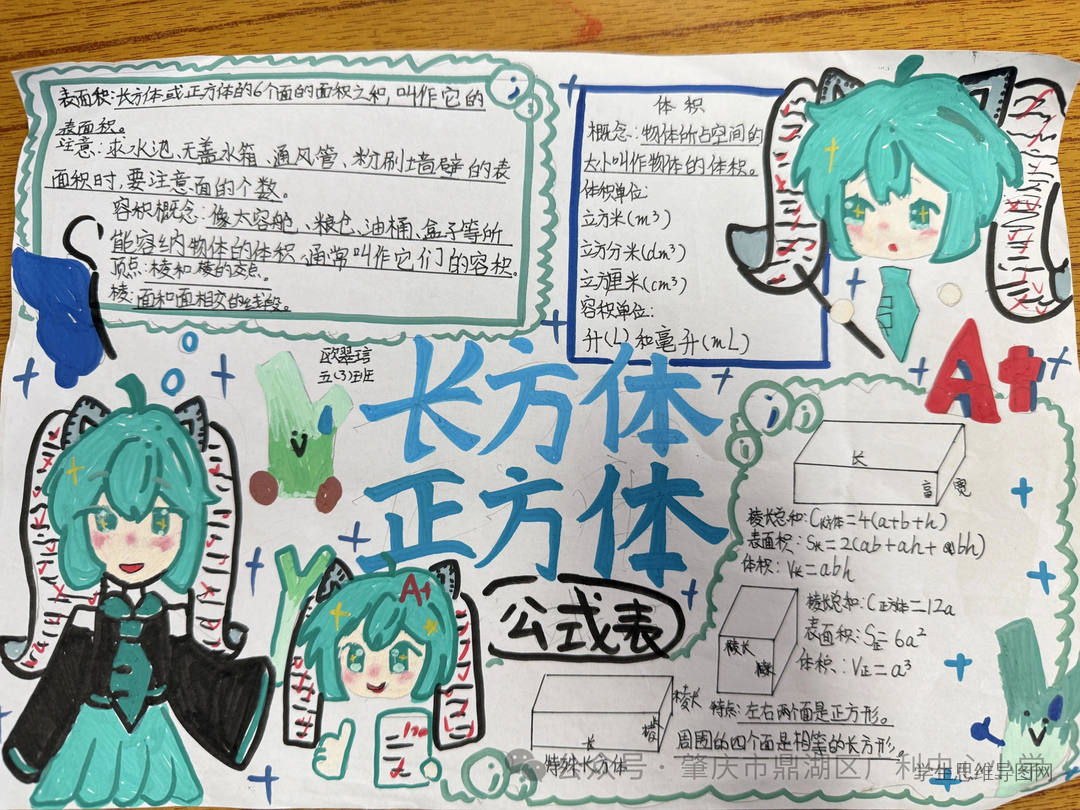 表面积:长方体或正方体的6个面的面积之和,叫作它的
表面积。
注意:求水池、无盖水箱、通风管、粉刷墙壁的表
面积时,要注意面的个数。
容积概念:像大容船、粮仓、油桶、盒子等所
能容纳物体的体积,通常叫作它们的容积。
顶点:棱和棱的交点。
棱:面和面相交的线段。
体积
概念:物体所占空间的
大小叫作物体的体积。
体积单位:
立方米(m³)
立方分米(dm³)
立方厘米(cm³)
容积单位:
升(L)和毫升(mL)
A+
五(3)班
长方体
正方体
公式表
长
高
宽
棱长总和:C长方体=4(a+b+h)
表面积:S长=2(ab+ah+bh)
体积:V长=abh
棱长
棱长总和:C正方体=12a
表面积:S正=6a²
体积:V正=a³
A+
棱长
长
特殊长方体
特点:左右两个面是正方形。
周围的四个面是相等的长方形。
公众号·肇庆市鼎湖区广利中心小学
学生思维导图网